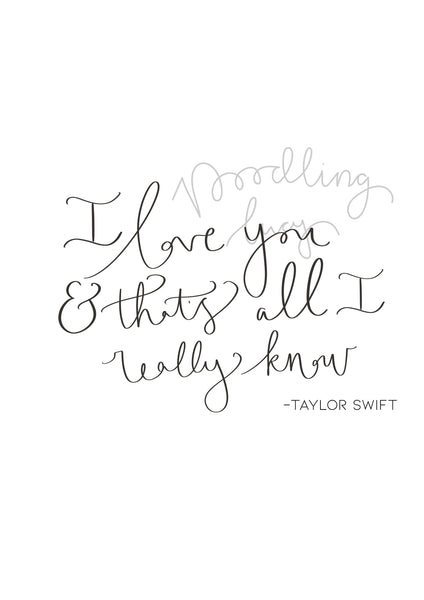 Doodling
lucy
I love you
& thats all I
really know
-TAYLOR SWIFT